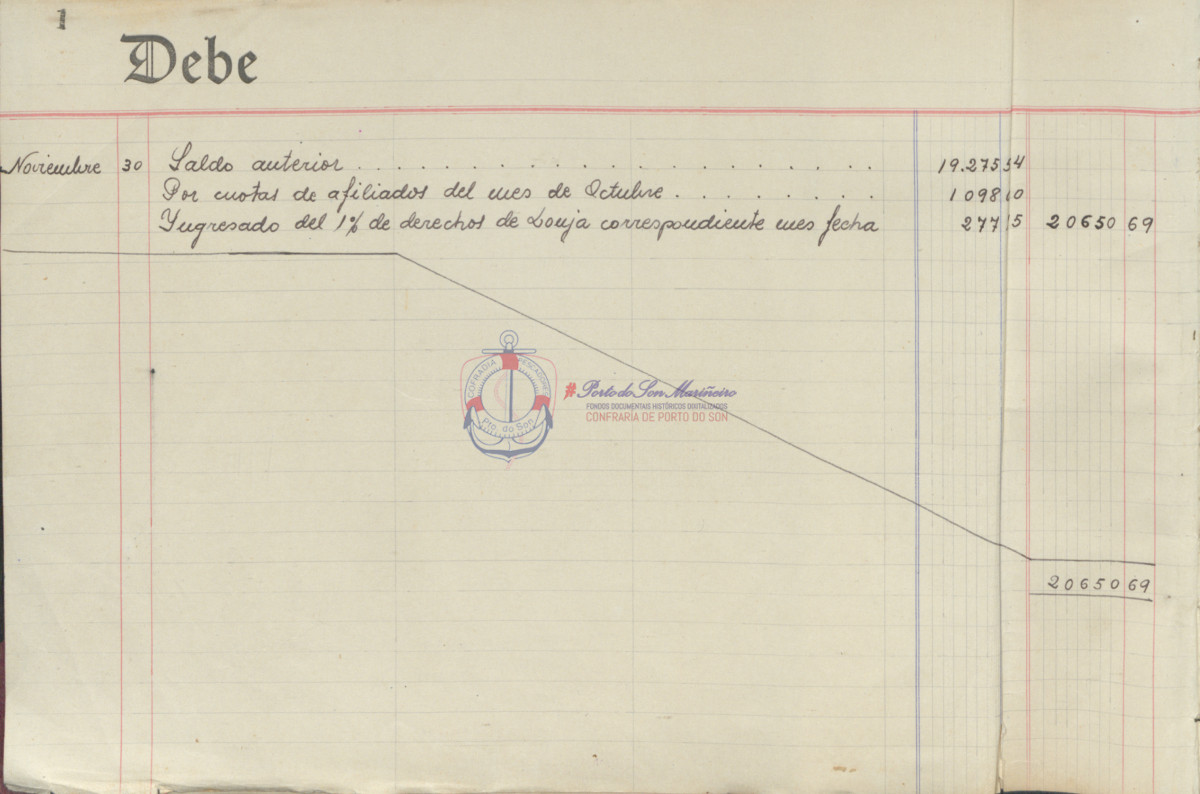 1
Debe
Noviembre 30 Saldo anterior . . . . . . . . . . . . . . . . . . 19.275 54
Por cuotas de afiliados del mes de Octubre . . . . . . . . 1098 10
Ingresado del 1% de derechos de Lonja correspondiente mes fecha 277 15 20650 69
COFRADIA PESCADORES
Pto. do Son
#Porto do Son Mariñeiro
FONDOS DOCUMENTAIS HISTÓRICOS DIXITALIZADOS
CONFRARÍA DE PORTO DO SON
20650 69